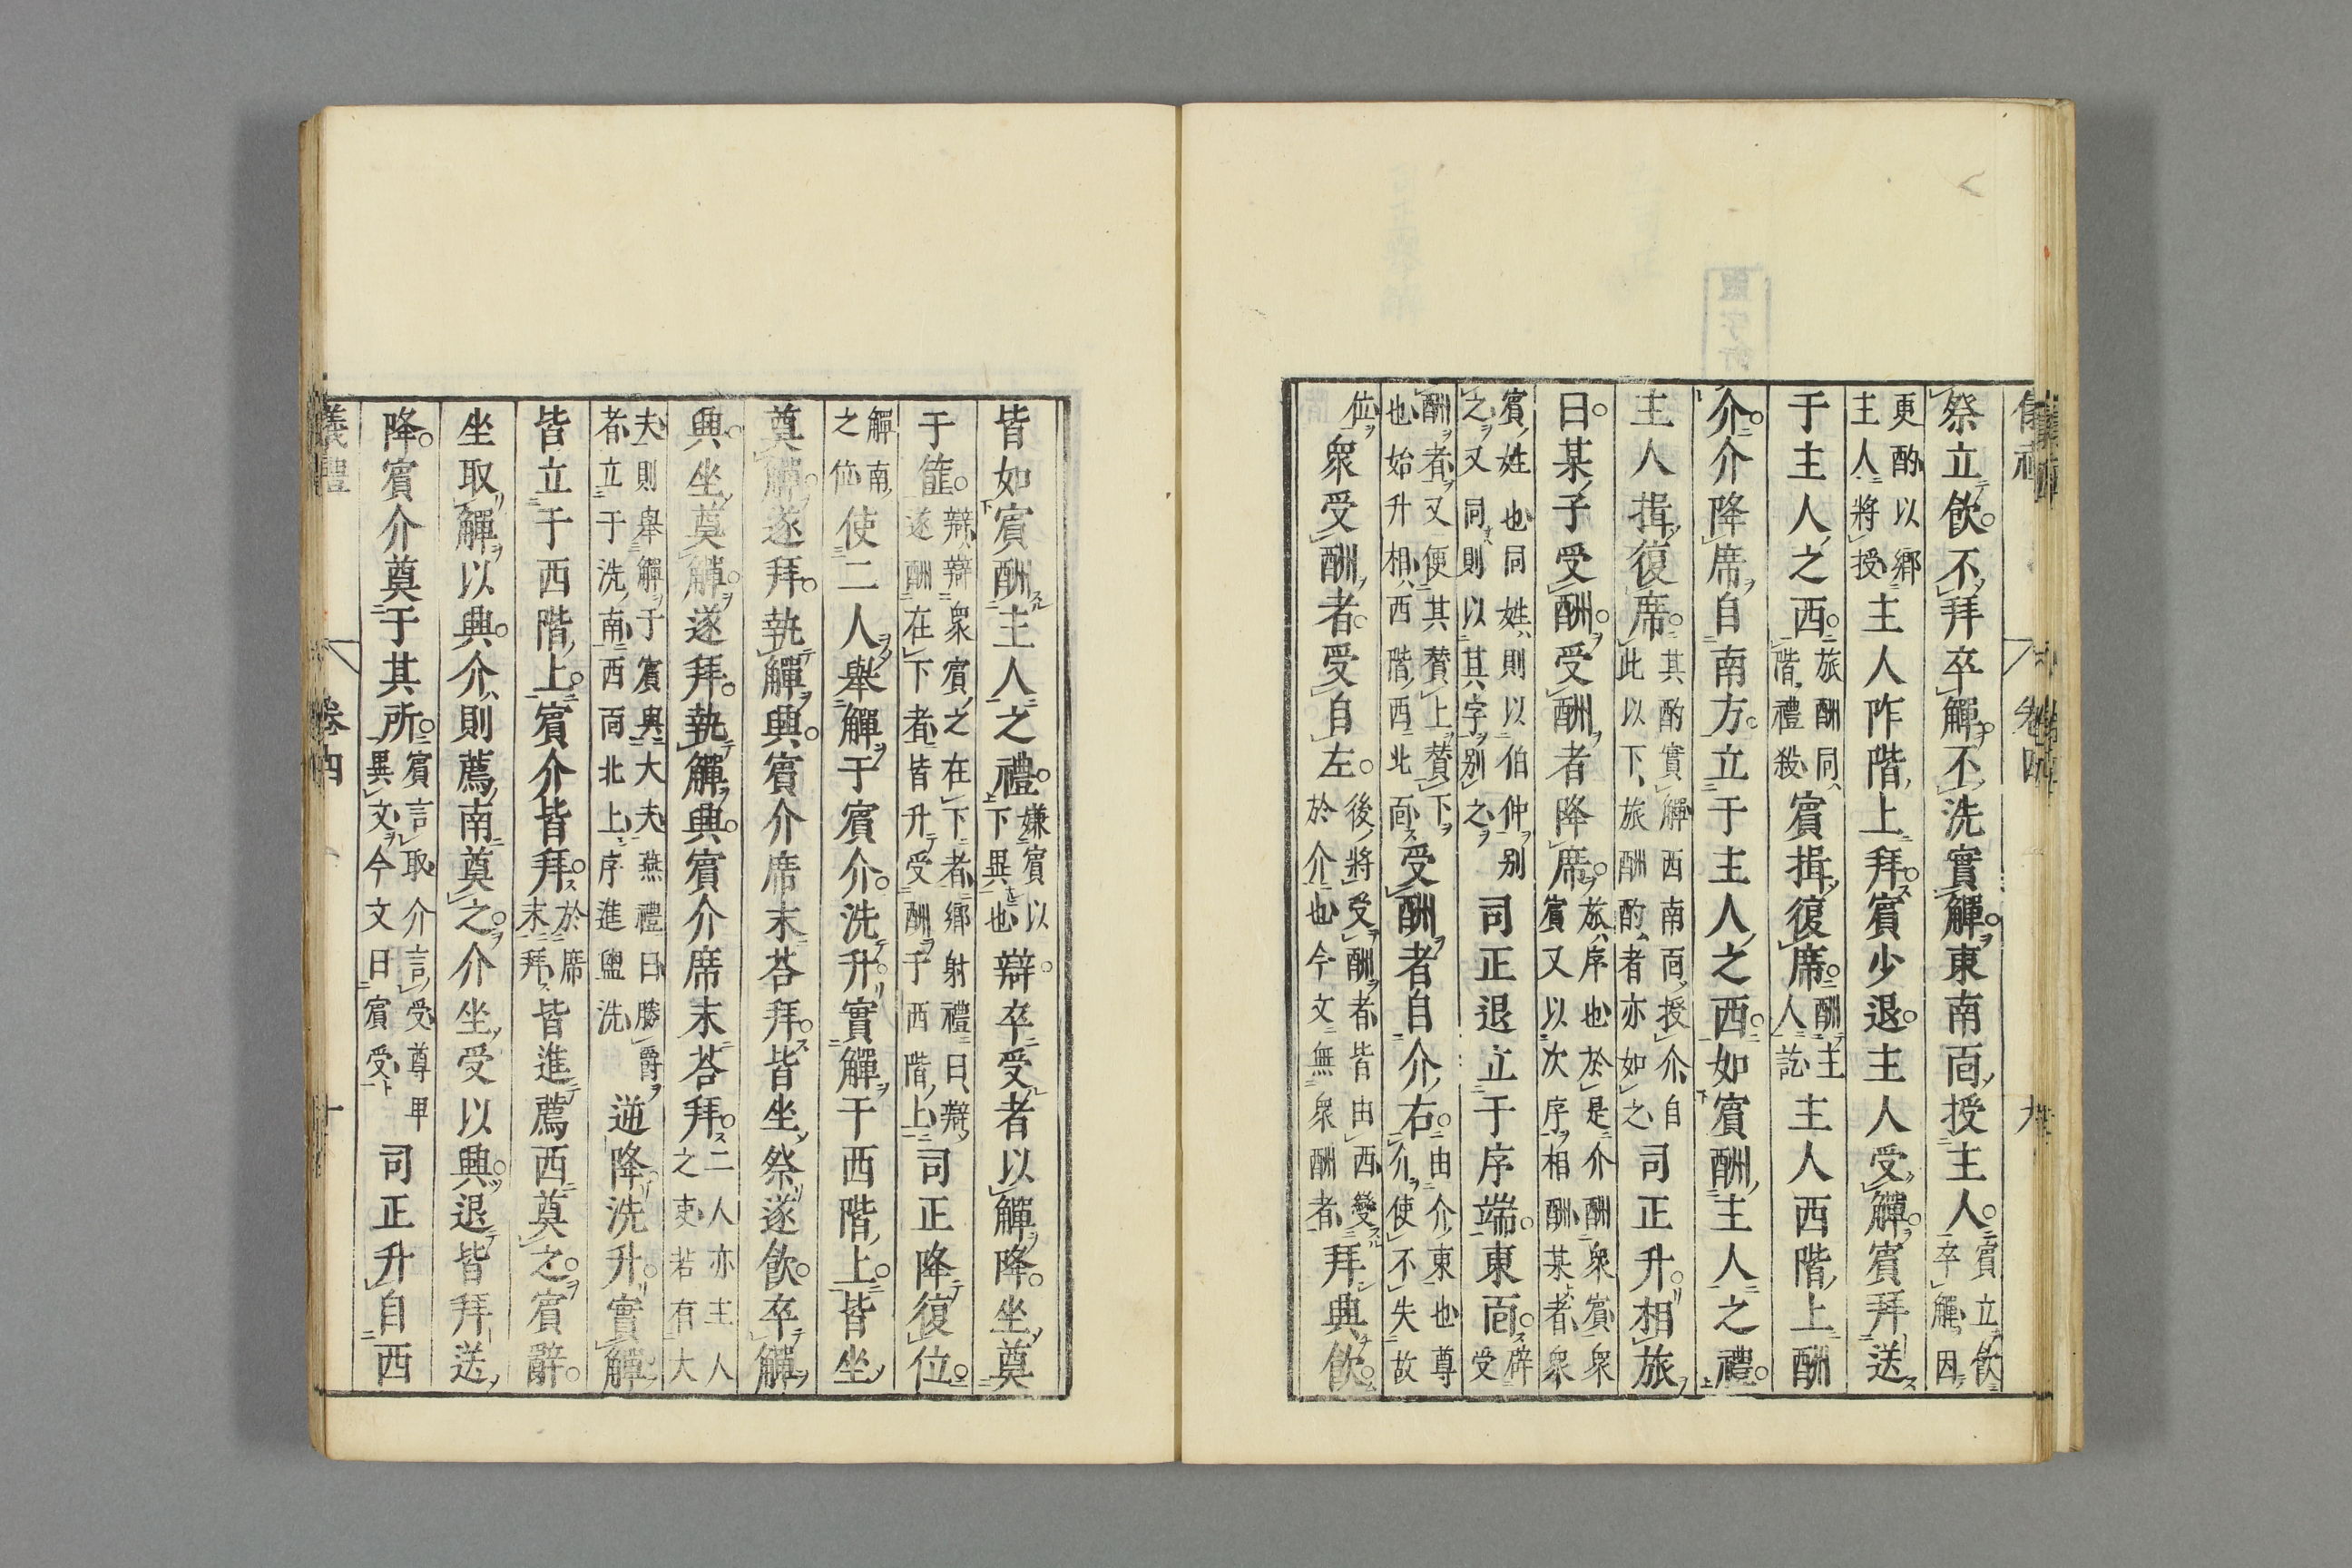 祭立飲不拜卒觶不洗實觶東南面授主人賓立飲卒觶因
更酌以鄉主人將授主人阼階上拜賓少退主人受觶賓拜送
于主人之西旅酬同階禮殺賓揖復席酬主人訖主人西階上酬
介介降席自南方立于主人之西如賓酬主人之禮
主人揖復席其酌實觶西南面授介自此以下旅酬酌者亦如之司正升相旅
曰某子受酬受酬者降席旅序也於是介酬衆賓衆賓又以次序相酬某者衆
賓姓也同姓則以伯仲別之又同則以其字別之司正退立于序端東面辟受
酬者又便其贊上贊下也始升相西階西北面受酬者自介右由介東也尊介使不失故
位衆受酬者受自左後將受酬者皆由西變於介也今文無衆酬者拜興飲
皆如賓酬主人之禮嫌賓以下異也辯卒受者以觶降坐奠
于篚辯辯衆賓之在下者鄉射禮曰辯遂酬在下者皆升受酬于西階上司正降復位
觶南之位使二人舉觶于賓介洗升實觶于西階上皆坐
奠觶遂拜執觶興賓介席末荅拜皆坐祭遂飲卒觶
興坐奠觶遂拜執觶興賓介席末荅拜二人亦主人之吏若有大
夫則舉觶于賓與大夫燕禮曰媵爵者立于洗南西面北上序進盥洗逆降洗升實觶
皆立于西階上賓介皆拜於席末拜皆進薦西奠之賓辭
坐取觶以興介則薦南奠之介坐受以興退皆拜送
降賓介奠于其所賓言取介言受尊卑異文今文曰賓受司正升自西
儀禮 卷四 十